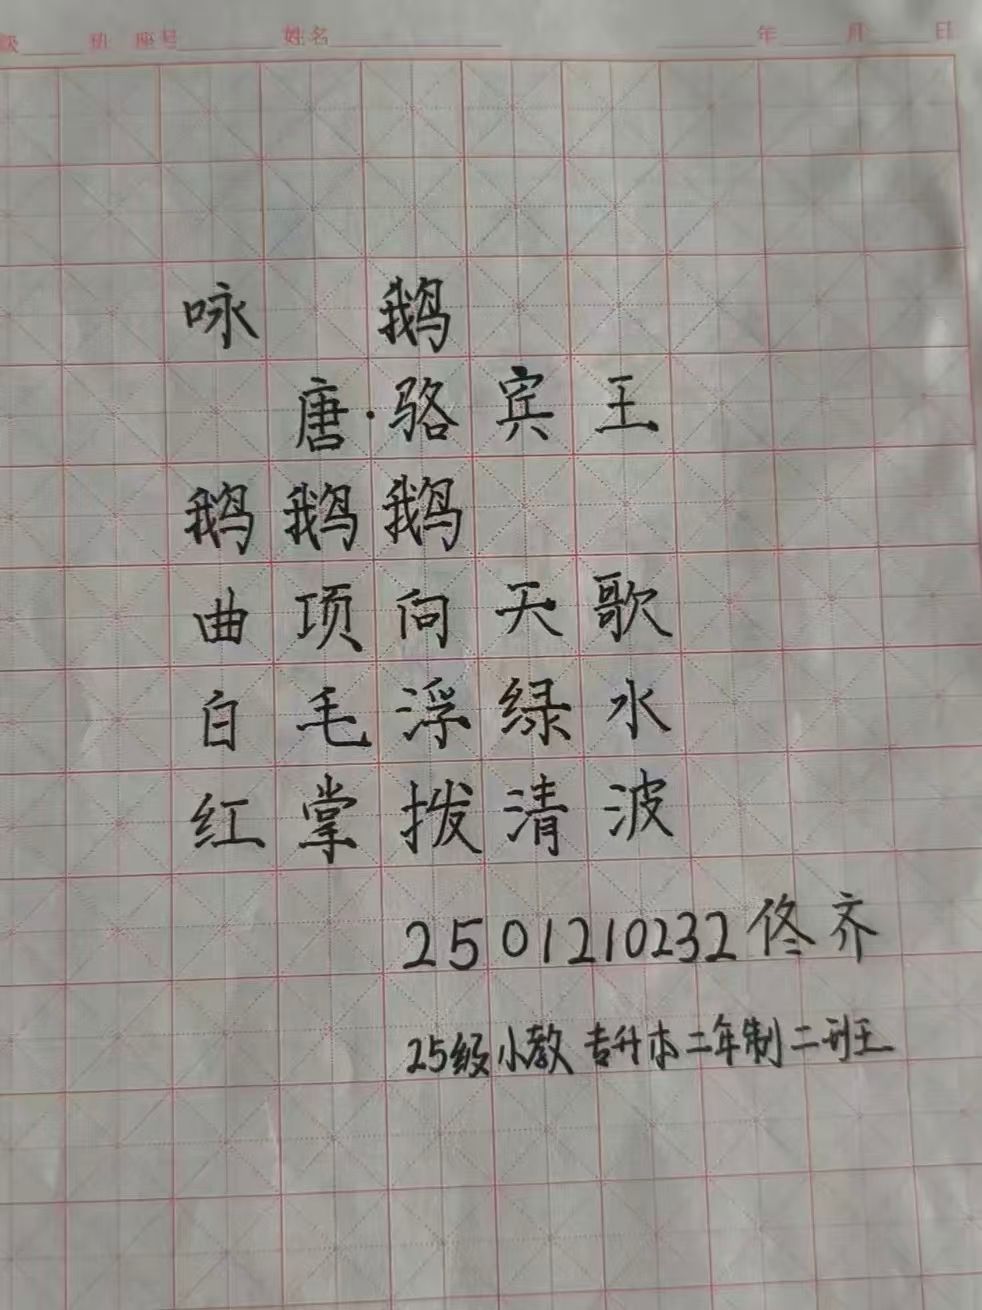 级 班 座号 姓名 年 月 日
咏 鹅
唐·骆宾王
鹅鹅鹅
曲项向天歌
白毛浮绿水
红掌拨清波
2501210232佟齐
25级小教 专升本二年制二班